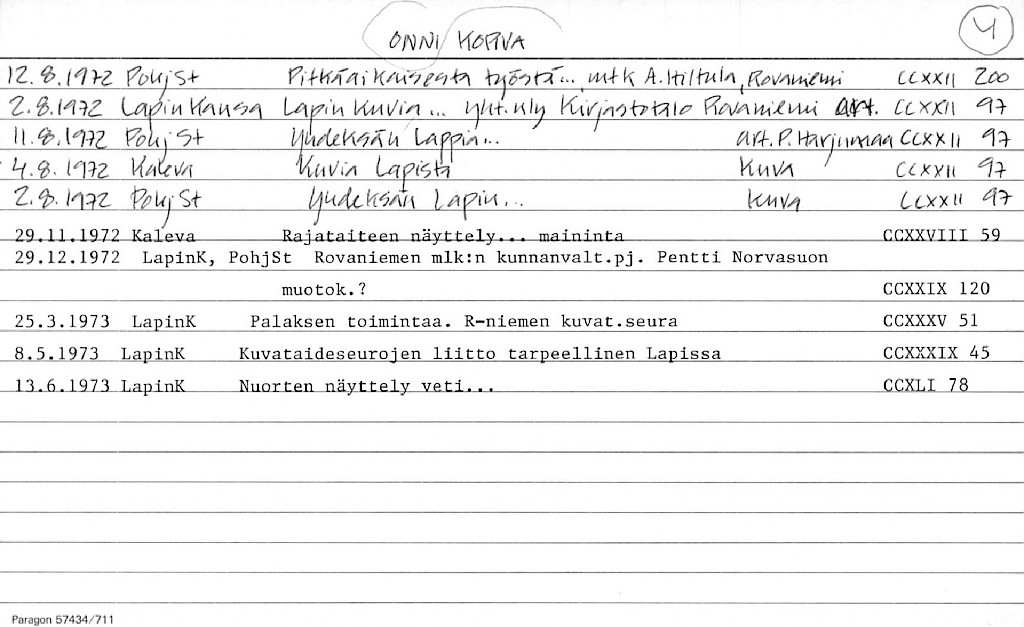 ONNI KORVA
4
12.8.1972 PohjSt Pitkäaikaisesta työstä... mtk A. Hiltula, Rovaniemi CCXXII 200
2.8.1972 Lapin Kansa Lapin kuvia... yht.nly Kirjastotalo Rovaniemi art. CCXXII 97
11.8.1972 PohjSt Yhdeksän Lappia... art. P. Harjumaa CCXXII 97
4.8.1972 Kaleva Kuvia Lapista Kuva CCXXII 97
2.8.1972 PohjSt Yhdeksän Lapin... Kuva CCXXII 97
29.11.1972 Kaleva Rajataiteen näyttely... maininta CCXXVIII 59
29.12.1972 LapinK, PohjSt Rovaniemen mlk:n kunnanvalt.pj. Pentti Norvasuon
muotok.? CCXXIX 120
25.3.1973 LapinK Palaksen toimintaa. R-niemen kuvat.seura CCXXXV 51
8.5.1973 LapinK Kuvataideseurojen liitto tarpeellinen Lapissa CCXXXIX 45
13.6.1973 LapinK Nuorten näyttely veti... CCXLI 78
Paragon 57434/711